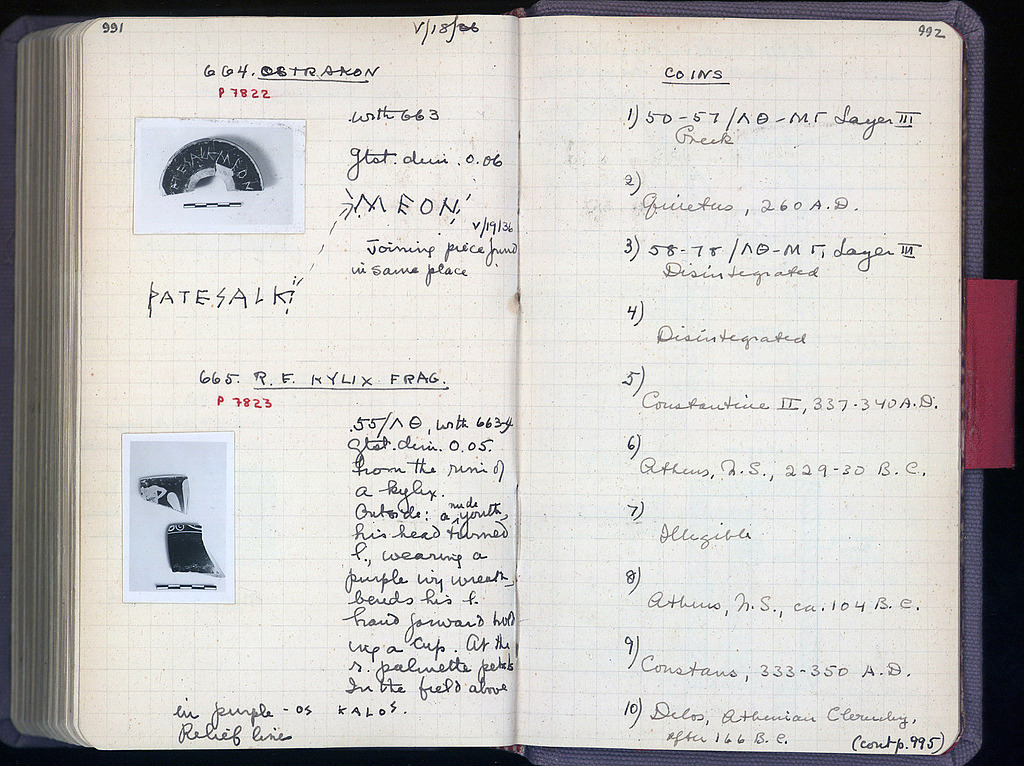 991
V/18/36
664. OSTRAKON
P 7822
with 663
Gtst. dim. 0.06
MEON
V/19/36
Joining piece found
in same place
PATESALKI
665. R. F. KYLIX FRAG.
P 7823
.55/ΛΘ, with 663-4
Gtst. dim. 0.05.
From the rim of
a kylix.
Outside: a nude youth,
his head turned
l., wearing a
purple ivy wreath,
bends his l.
hand forward hold
ing a cup. At the
r. palmette petals
In the field above
in purple - OS KALOS.
Relief lines
992
COINS
1) 50-57/ΛΘ-ΜΓ Layer III
Greek
2)
Quietus, 260 A.D.
3) 58-78/ΛΘ-ΜΓ, Layer III
Disintegrated
4)
Disintegrated
5)
Constantine II, 337-340 A.D.
6)
Athens, N.S., 229-30 B.C.
7)
Illegible
8)
Athens, N.S., ca. 104 B.C.
9)
Constans, 333-350 A.D.
10) Delos, Athenian Cleruchy,
after 166 B.C.
(cont p. 995)